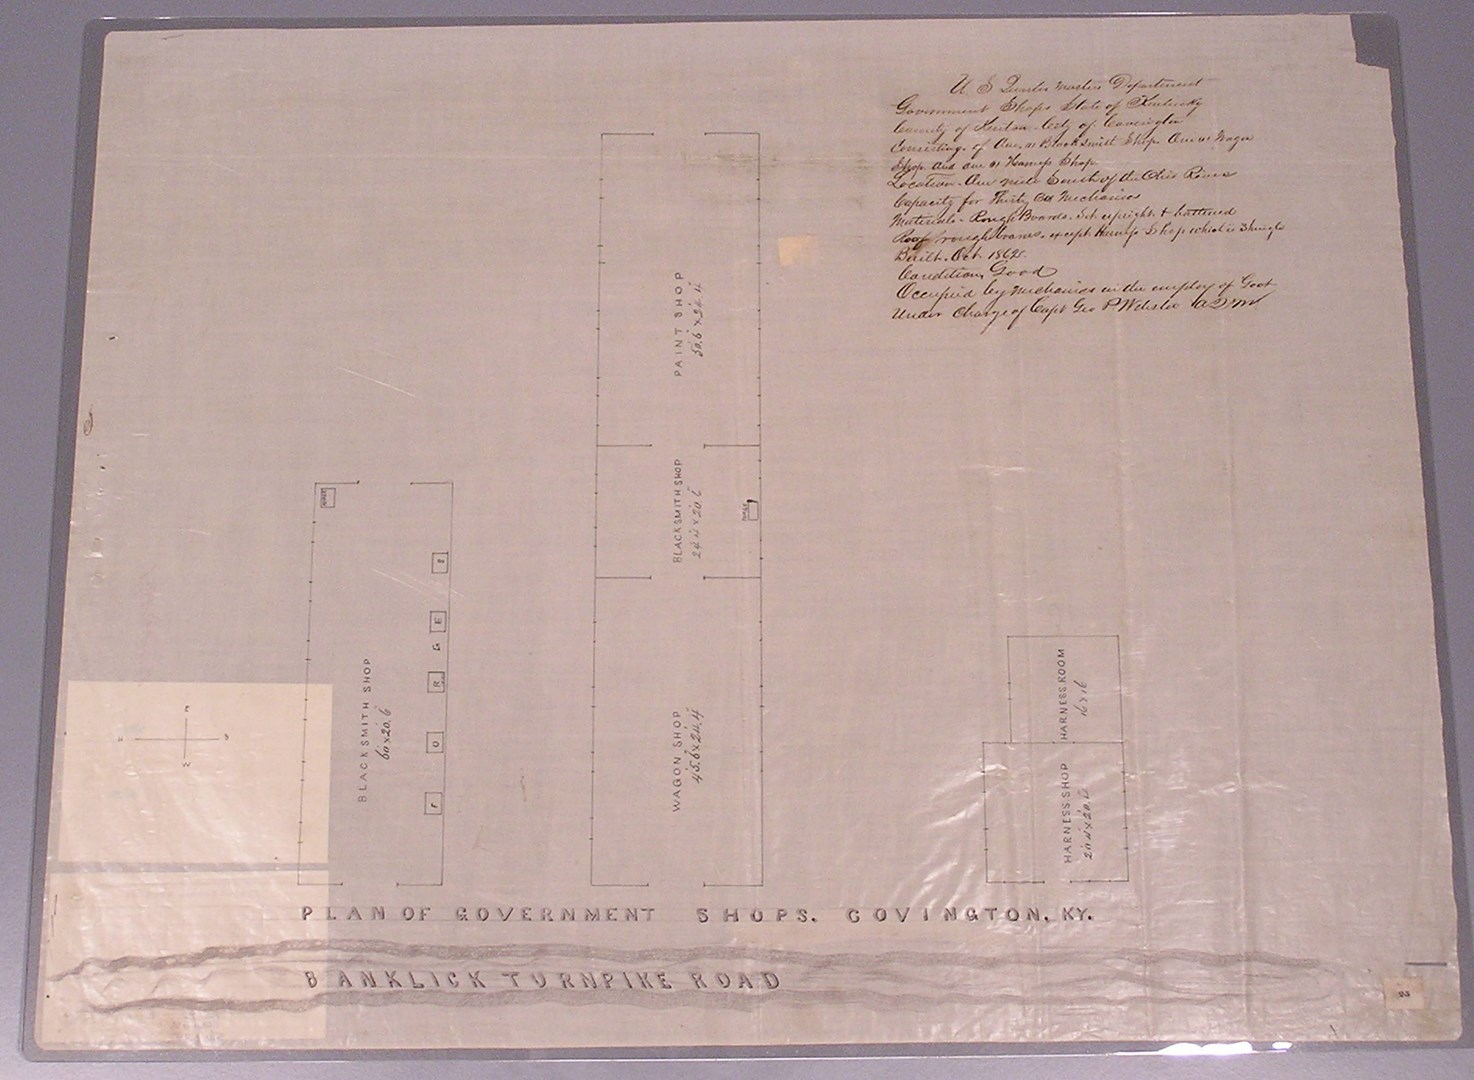 U. S. Quarter Masters Department
Government Shops State of Kentucky
County of Kenton - City of Covington
Consisting of One 01 Blacksmith Shop One 01 Wagon
Shop and one 01 Harness Shop
Location - One mile South of the Ohio River
Capacity for Thirty Mechanics
Materials - Rough Boards. Set upright & battened
Roof rough boards, except Harness Shop which is Shingle
Built. Oct. 1862.
Condition, Good
Occupied by Mechanics in the employ of Govt
Under Charge of Capt Geo P Webster A.Q.M.
PAINT SHOP
BLACKSMITH SHOP
FORGE
BLACKSMITH SHOP
60 x 20.6
F O R G E S
WAGON SHOP
45.6 x 24.4
HARNESS ROOM
16 x 16
HARNESS SHOP
E
N S
W
PLAN OF GOVERNMENT SHOPS. COVINGTON, KY.
BANKLICK TURNPIKE ROAD